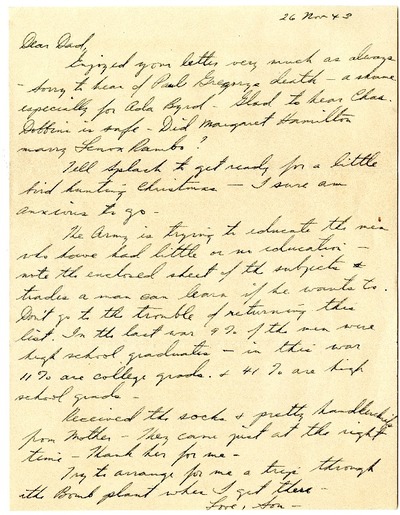 26 Nov 43
Dear Dad,
Enjoyed your letter very much as always
- Sorry to hear of Paul Gregorys death - a shame
especially for Ada Byrd - Glad to hear Chas.
Dobbins is safe - Did Margaret Hamilton
marry Rambo?
Tell Splash to get ready for a little
bird hunting Christmas - I sure am
anxious to go -
The Army is trying to educate the men
who have had little or no education -
note the enclosed sheet of the subjects &
trades a man can learn if he wants to.
Don't go to the trouble of returning this
list. In the last war 9% of the men were
high school graduates - in this war
11% are college grads. & 41% are high
school grads -
Received the socks & pretty handkerchiefs
from Mother - They came just at the right
time - Thank her for me -
Try to arrange for me a trip through
the Bomb plant when I get there -
Love, Son -